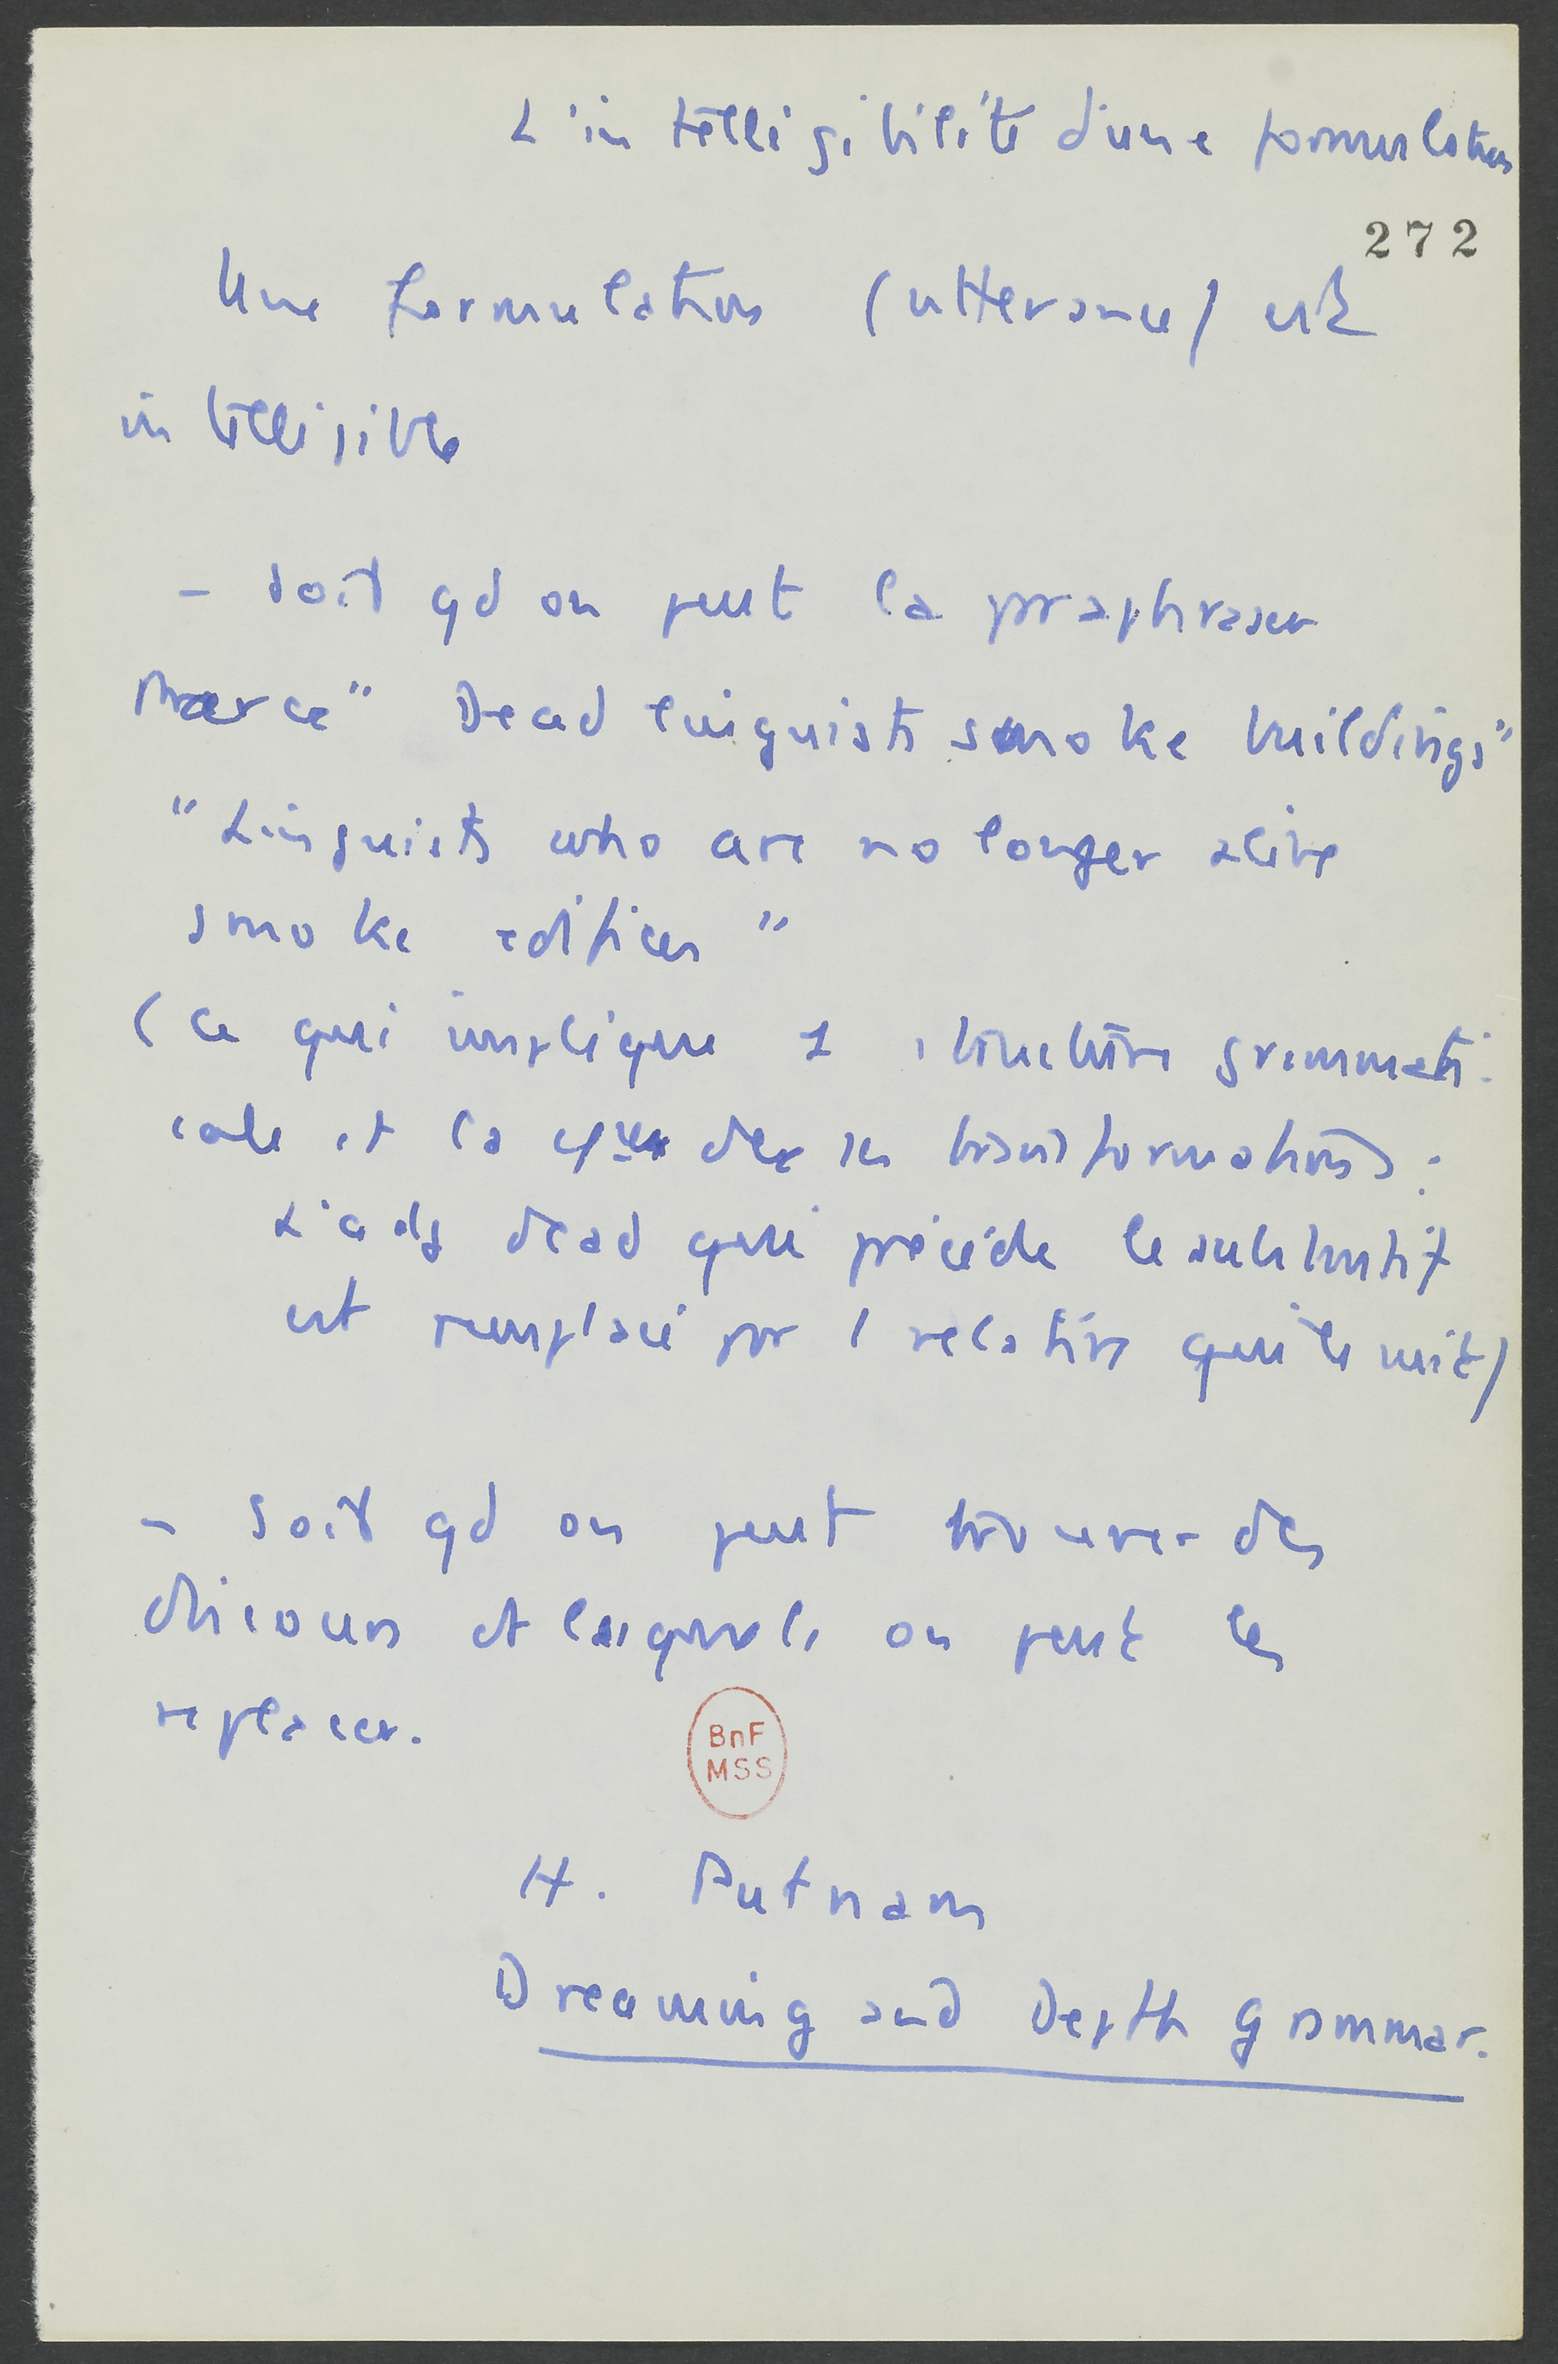 L'intelligibilité d'une formulation
272
Une formulation (utterance) est
intelligible
- soit qd on peut la praphraser
"Dead linguists smoke buildings"
"Linguists who are no longer alive
smoke edifices"
(ce qui implique 1 structure grammati-
cale et la des ses transformations :
L'adj dead qui précède le substantif
est remplacé par 1 relative qui le suit)
- soit qd on peut trouver des
discours et lesquels on peut les
replacer.
BnF
MSS
H. Putnam
Dreaming and Depth grammar.